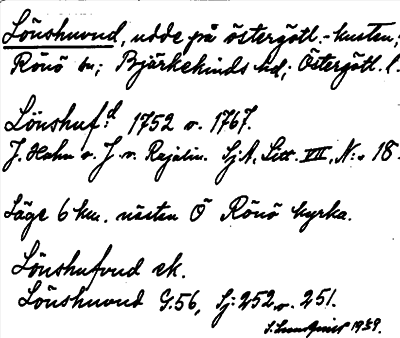 Lönshuvud, udde på östergötl.-kusten;
Rönö sn; Björkekinds hd; Östergötl. l.
Lönshuf:d 1752 o. 1767.
J. Hahn o. J. v. Rajalin. SjA, Litt. VII, N:o 18.
Läge 6 km. nästan Ö Rönö kyrka.
Lönshufvud ek.
Lönshuvud G.56, Sj: 252 o. 251.
1939.